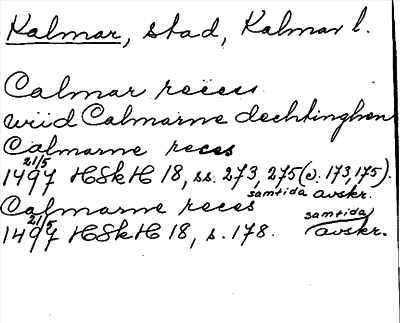 Kalmar, stad, Kalmar l.
Calmar recess
wiid Calmarne dechtinghen
Calmarne recess
21/5
1497 HSkH 18, ss. 273, 275 (o. 173, 175).
samtida avskr.
Calmarne recess
21/5
1497 HSkH 18, s. 178. samtida avskr.